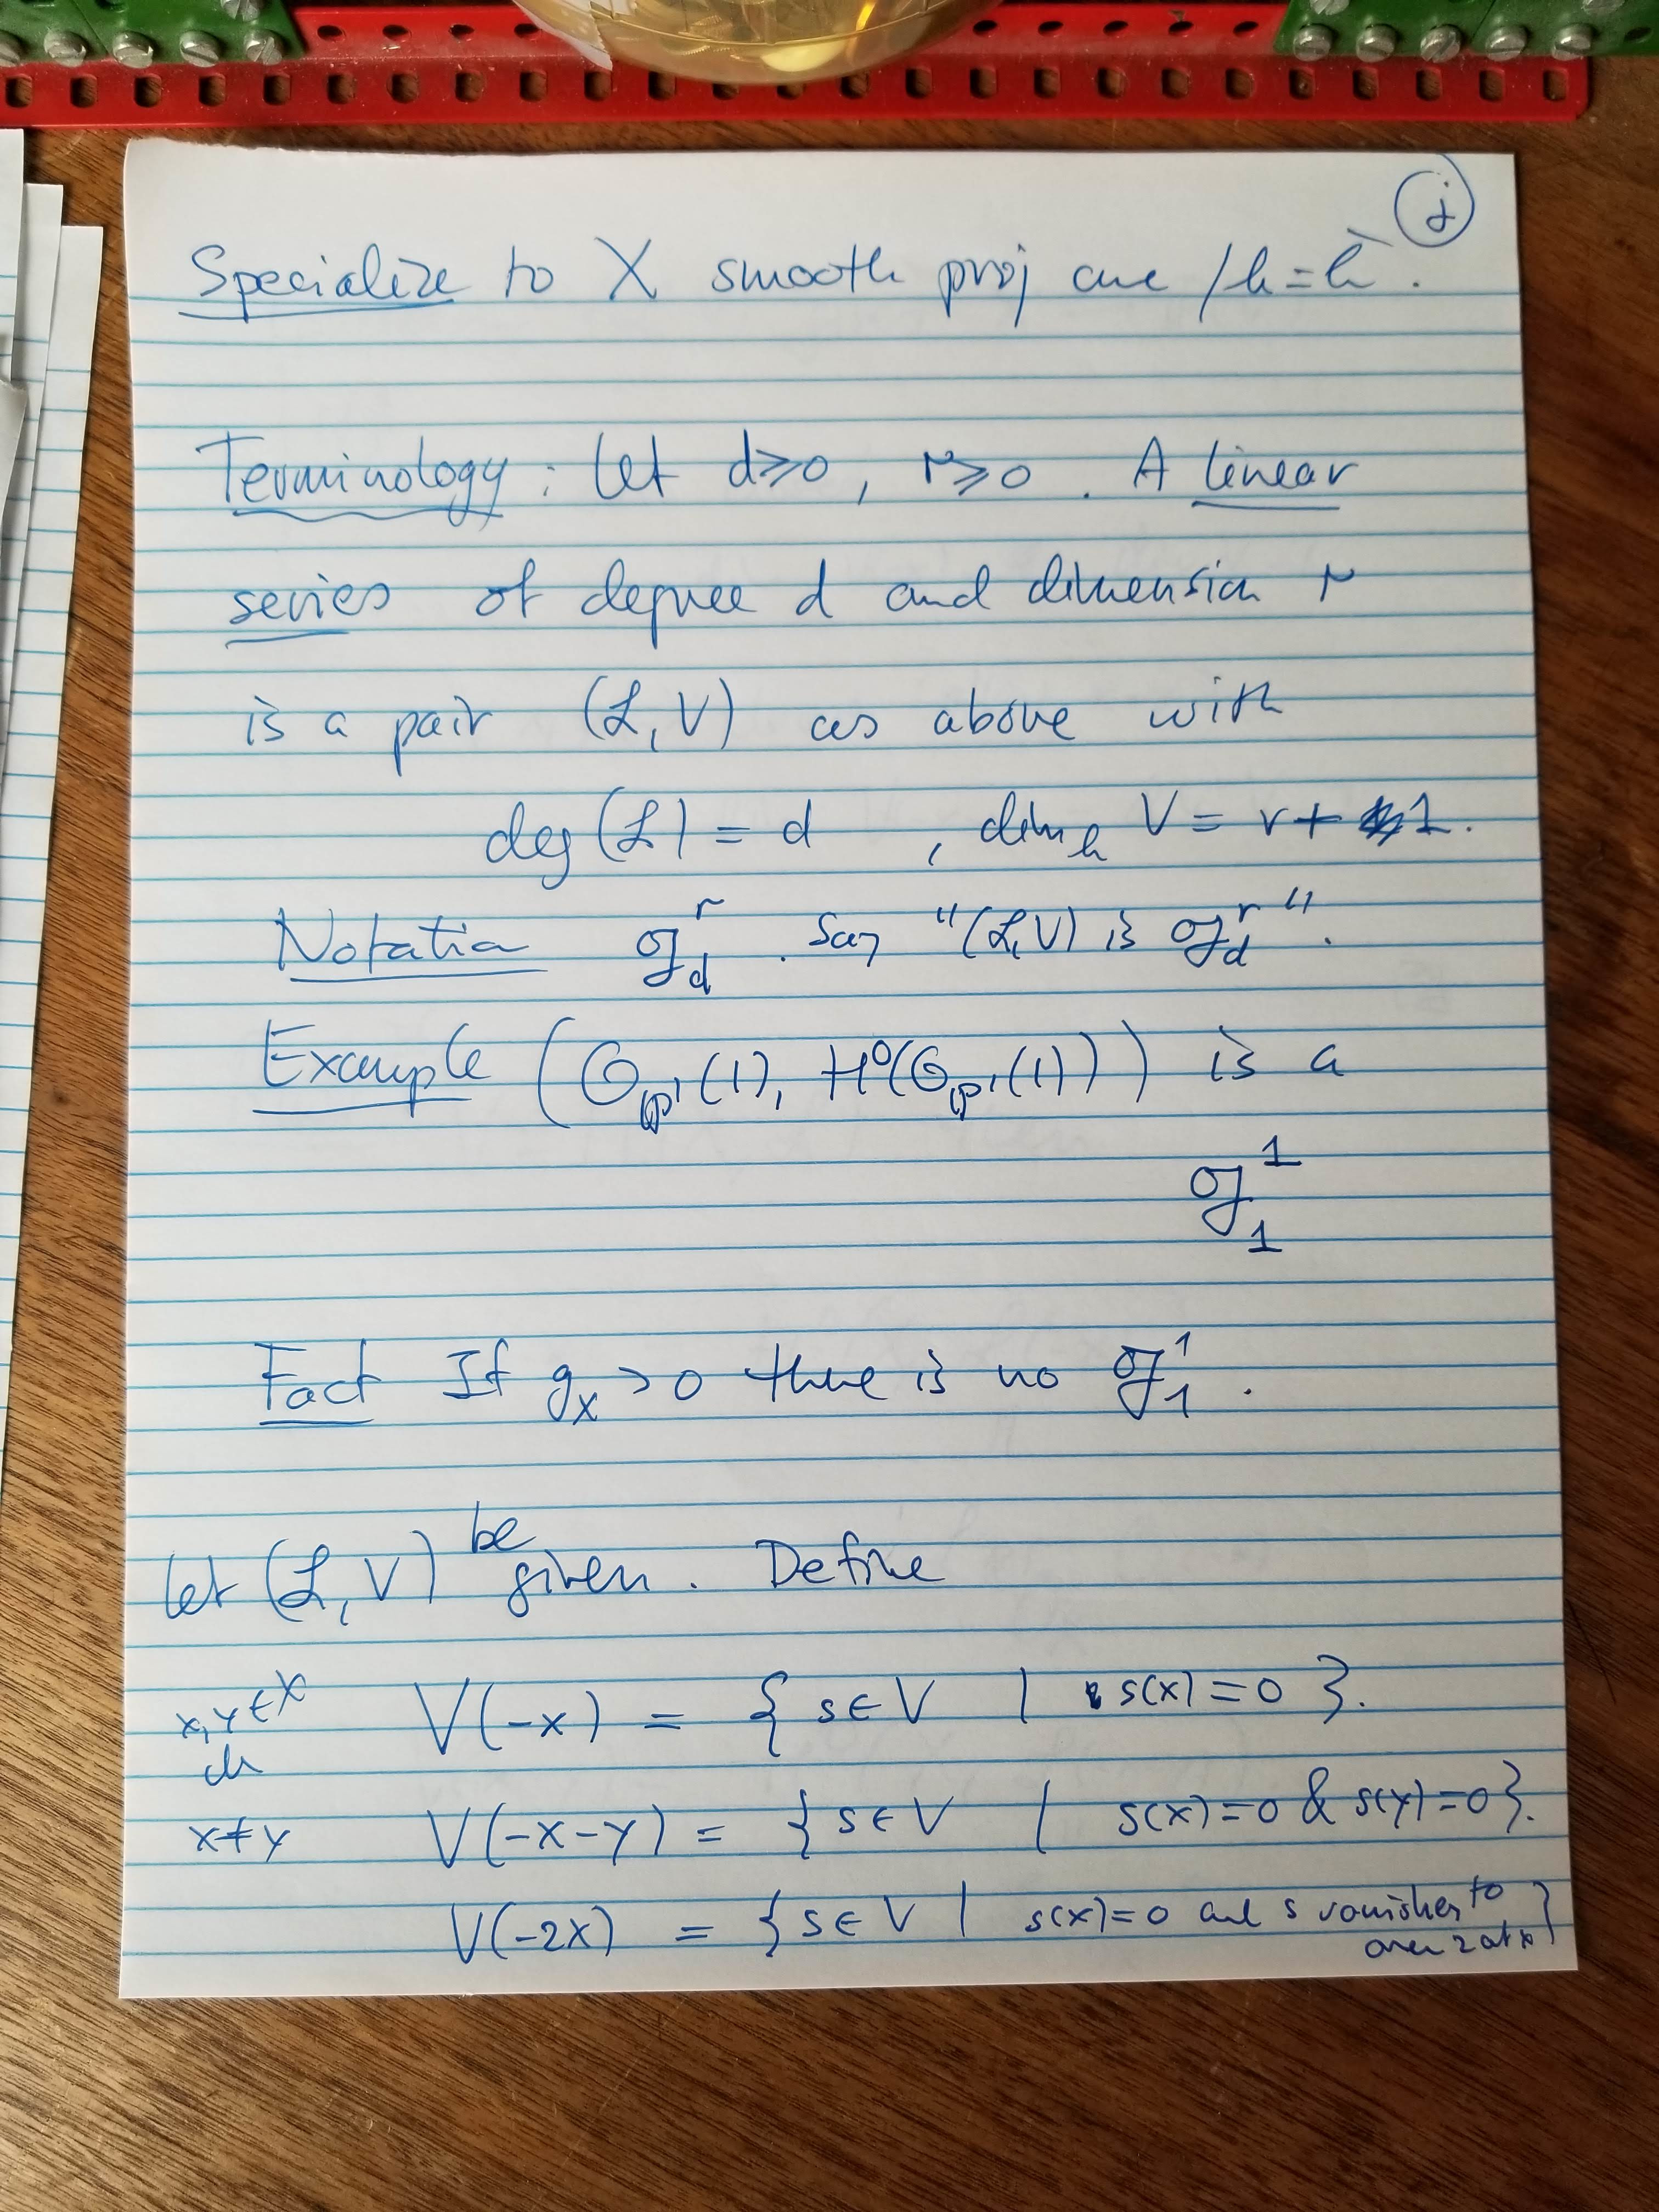 j
Specialize to X smooth proj curve / k = k̄.
Terminology: Let d ≥ 0, r ≥ 0. A linear
series of degree d and dimension r
is a pair (ℒ, V) as above with
deg(ℒ) = d, dim_k V = r + 1.
Notation 𝔤^r_d. Say "(ℒ, V) is 𝔤^r_d".
Example (𝒪_ℙ¹(1), H⁰(𝒪_ℙ¹(1))) is a
𝔤^1_1
Fact If g_X > 0 there is no 𝔤^1_1.
Let (ℒ, V) be given. Define
x, y ∈ X V(-x) = { s ∈ V | s(x) = 0 }.
cl
x ≠ y V(-x-y) = { s ∈ V | s(x) = 0 & s(y) = 0 }.
V(-2x) = { s ∈ V | s(x) = 0 and s vanishes to
order 2 at x }